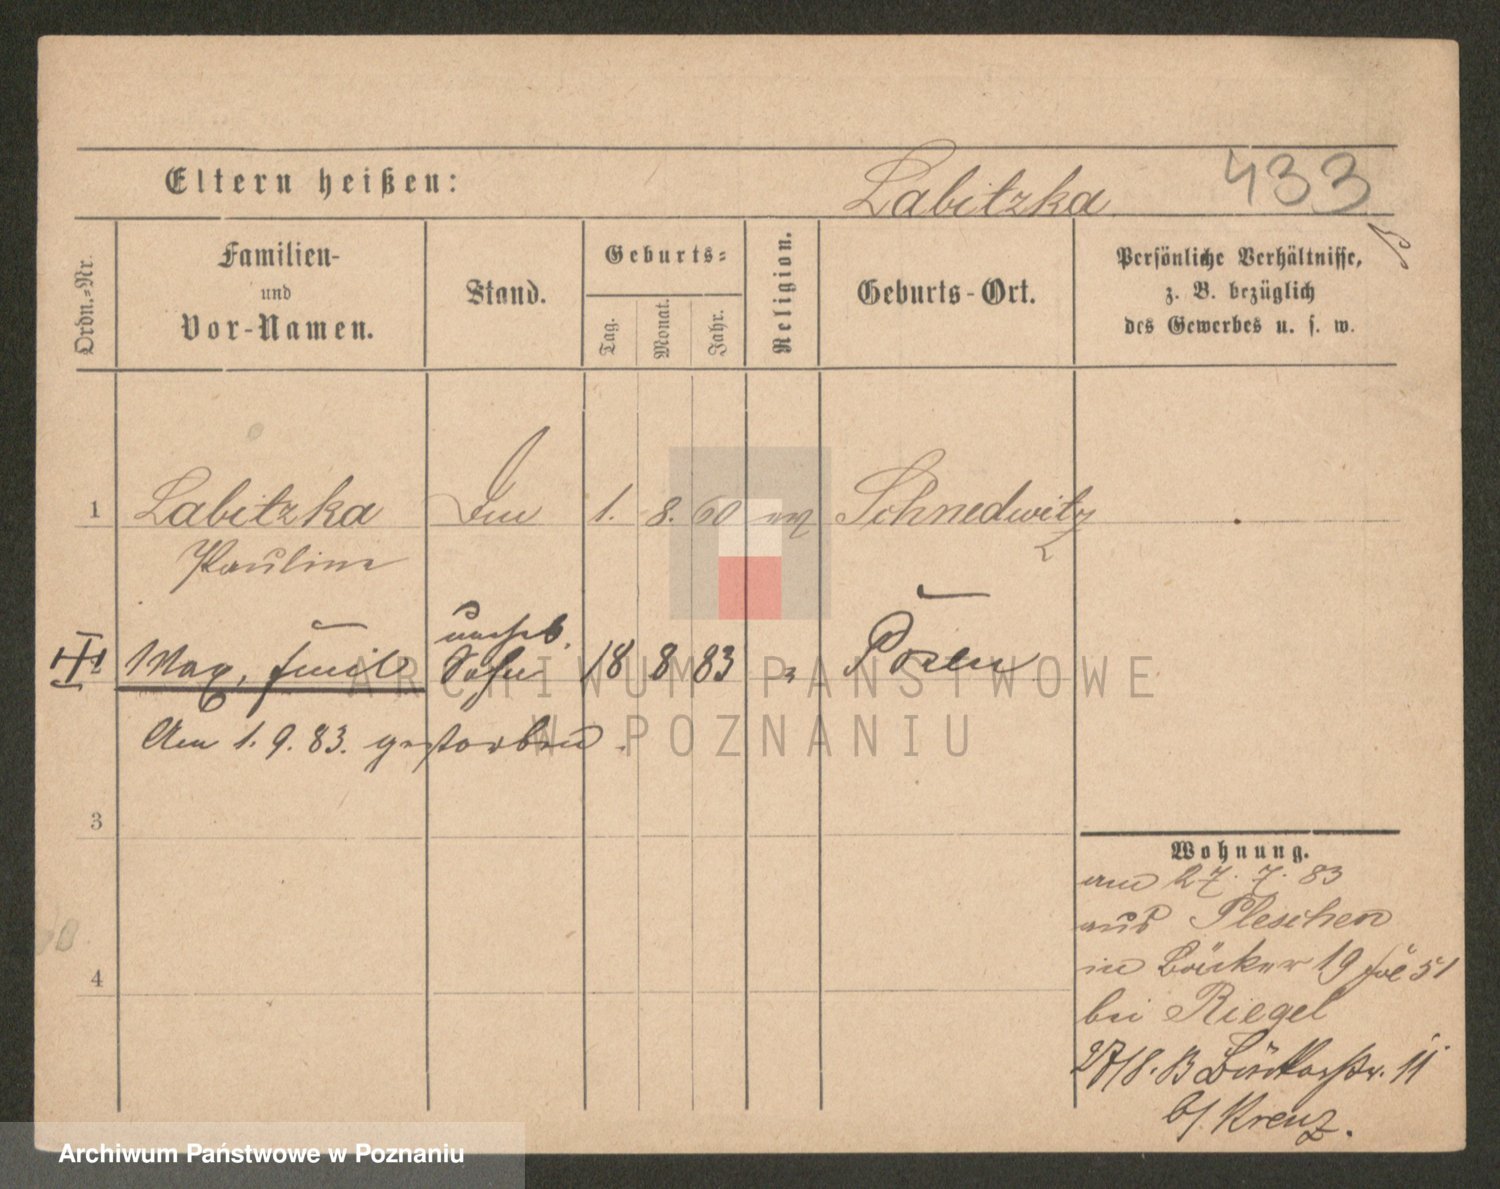 Eltern heißen:
Labitzka
433
Ordn.=Nr.
Familien-
und
Vor-Namen.
Stand.
Geburts=
Tag.
Monat.
Jahr.
Religion.
Geburts-Ort.
Persönliche Verhältnisse,
z. B. bezüglich
des Gewerbes u. s. w.
1 Labitzka 1. 8. 60 Schnedwitz
Pauline
unehel.
Max, Emil Sohn 18 8 83 " Posen
Am 1. 9. 83. gestorben.
3
4
Wohnung.
am 27. 7. 83
aus Pleschen
in Bäcker 19 51
bei Riegel
27/8. 83 Bäckerstr. 11
b/ Krenz.
ARCHIWUM PAŃSTWOWE
W POZNANIU
Archiwum Państwowe w Poznaniu